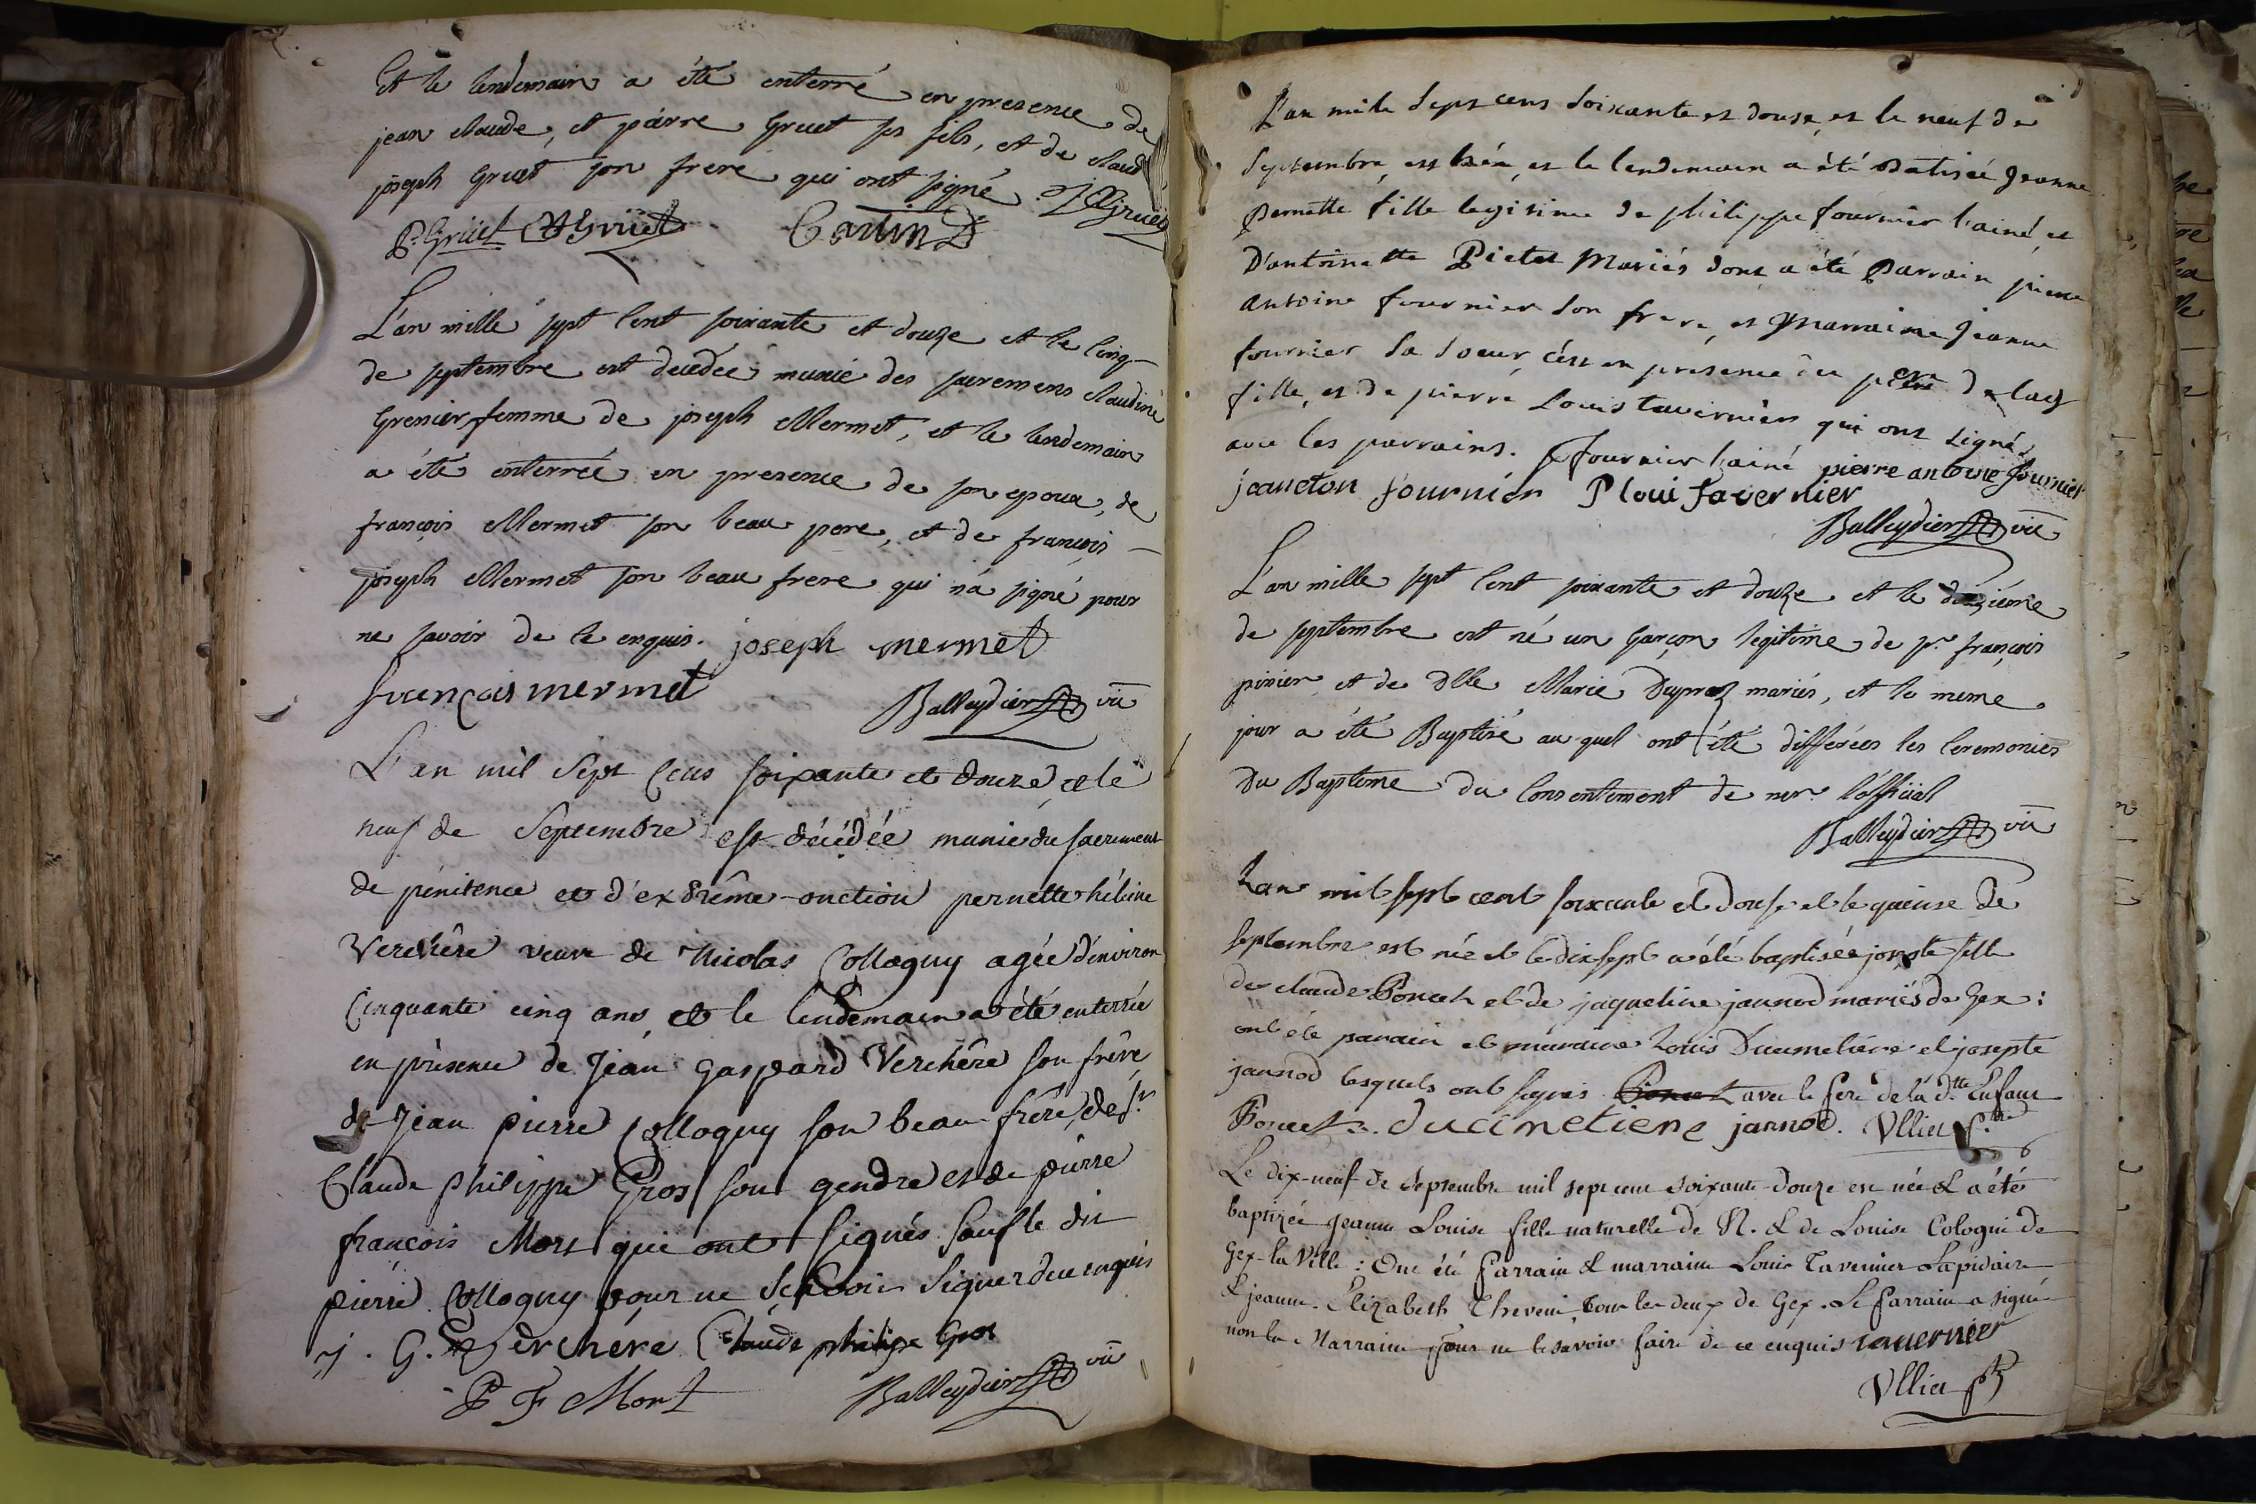 Et le lendemain a été enterré en presence de
jean claude, et pierre Gruet ses fils, et de claud
joseph Gruet son frere qui ont signé
P. Grüet
L'an mille sept cent soixante et douze et le cinq
de septembre est decedée munie des sacremens claudine
Grenier femme de joseph Mermet, et le lendemain
a été enterrée en presence de son epoux, de
françois Mermet son beau pere, et de françois
joseph Mermet son beau frere qui n'a signé pour
ne savoir de ce enquis. joseph mermet
françois mermet Balleydier vic
L'an mil Sept Cens soixante et douze, et le
neuf de Septembre est décédée munie du sacrement
de pénitence et d'extrême-onction pernette hélene
Verchêre veuve de Nicolas Collogny agée d'environ
Cinquante cinq ans, et le lendemain a été enterrée
en présence de Jean Gaspard Verchêre son frêre,
de Jean pierre Collogny son beau-frêre, de sr
Claude philippe Gros son gendre et de pierre
françois Mort qui ont signés sauf le dit
pierre Collogny pour ne Sçavoir Signer de ce enquis
j. G. Verchére Claude philipe Gros
P F Mort Balleydier vic
L'an mile sept cens soixante et douse, et le neuf de
septembre, est née, et le lendemain a été batisée jeanne
pernette fille legitime de philippe fournier l'ainé, et
D'antoinette Pictet Mariés dont a été Parrain pierre
antoine fournier son frere, et Marraine jeanne
fournier sa soeur, c'est en presence du pere de lad
fille, et de pierre Louis tavernier qui ont signé
avec les parrains. fournier l'ainé pierre antoine fournier
jeancton fournier P loui tavernier
Balleydier vic
L'an mille sept cent soixante et douze et le douzième
de septembre est né un garçon legitime de sr françois
pinier et de Dlle Marie Dupraz mariés, et le meme
jour a été Baptisé au quel ont été differées les ceremonies
du Bapteme du consentement de mr l'official
Balleydier vic
Lan mil sept cent soixante et douse et le quinse de
septembre est née et le dix sept a été baptisée josepte fille
de claude Poncet et de jaqueline jannod mariés de Gex :
ont été parain et maraine Louis Ducimetiére et josepte
jannod lesquels ont signés Poncet avec le Pere de la dtte Enfant
Poncet. ducimetiere jannod. Vlliet
Le dix-neuf de Septembre mil sept cent soixante-douze est née & a été
baptizée Jeanne Louise fille naturelle de N. & de Louise Cologni de
Gex-la Ville : Ont été Parrain & marraine Louis Tavernier Lapidaire
& jeanne Elizabeth Thevenin, tous les deux de Gex. Le Parrain a signé
non la Marraine pour ne le savoir faire de ce enquis tavernier
Vlliet